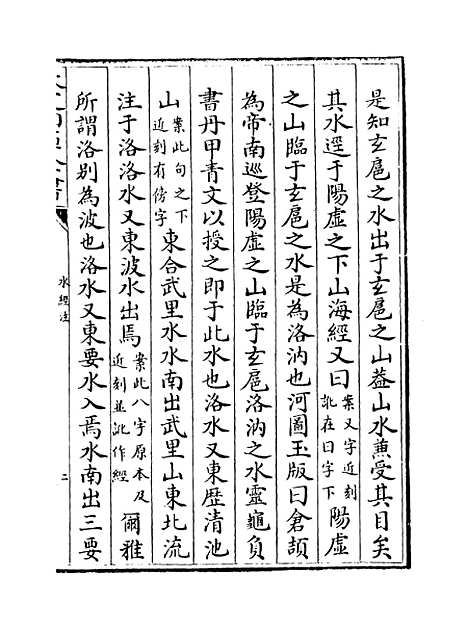 是知玄扈之水出于玄扈之山葢山水兼受其目矣
其水逕于陽虚之下山海經又曰案又字近刻訛在曰字下陽虚
之山臨于玄扈之水是為洛汭也河圖玉版曰倉頡
為帝南巡登陽虚之山臨于玄扈洛汭之水靈龜負
書丹甲青文以授之即于此水也洛水又東歴清池
山案此句之下近刻有傍字東合武里水水南出武里山東北流
注于洛洛水又東波水出焉案此八字原本及近刻並訛作經爾雅
所謂洛别為波也洛水又東要水入焉水南出三要
水經注
二